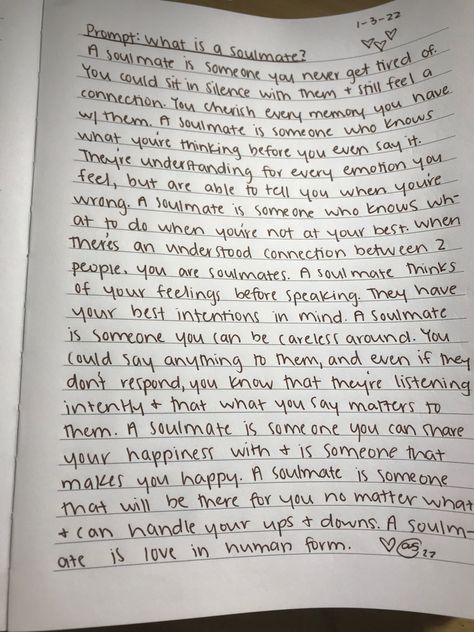 1-3-22
Prompt: What is a soulmate?
A soulmate is someone you never get tired of.
You could sit in silence with them + still feel a
connection. You cherish every memory you have
w/ them. A soulmate is someone who knows
what you're thinking before you even say it.
They're understanding for every emotion you
feel, but are able to tell you when you're
wrong. A soulmate is someone who knows wh-
at to do when you're not at your best. When
there's an understood connection between 2
people. you are soulmates. A soulmate thinks
of your feelings before speaking. They have
your best intentions in mind. A soulmate
is someone you can be careless around. You
could say anything to them, and even if they
don't respond, you know that they're listening
intently + that what you say matters to
them. A soulmate is someone you can share
your happiness with + is someone that
makes you happy. A soulmate is someone
that will be there for you no matter what
+ can handle your ups + downs. A soulm-
ate is love in human form. ♡ as 22